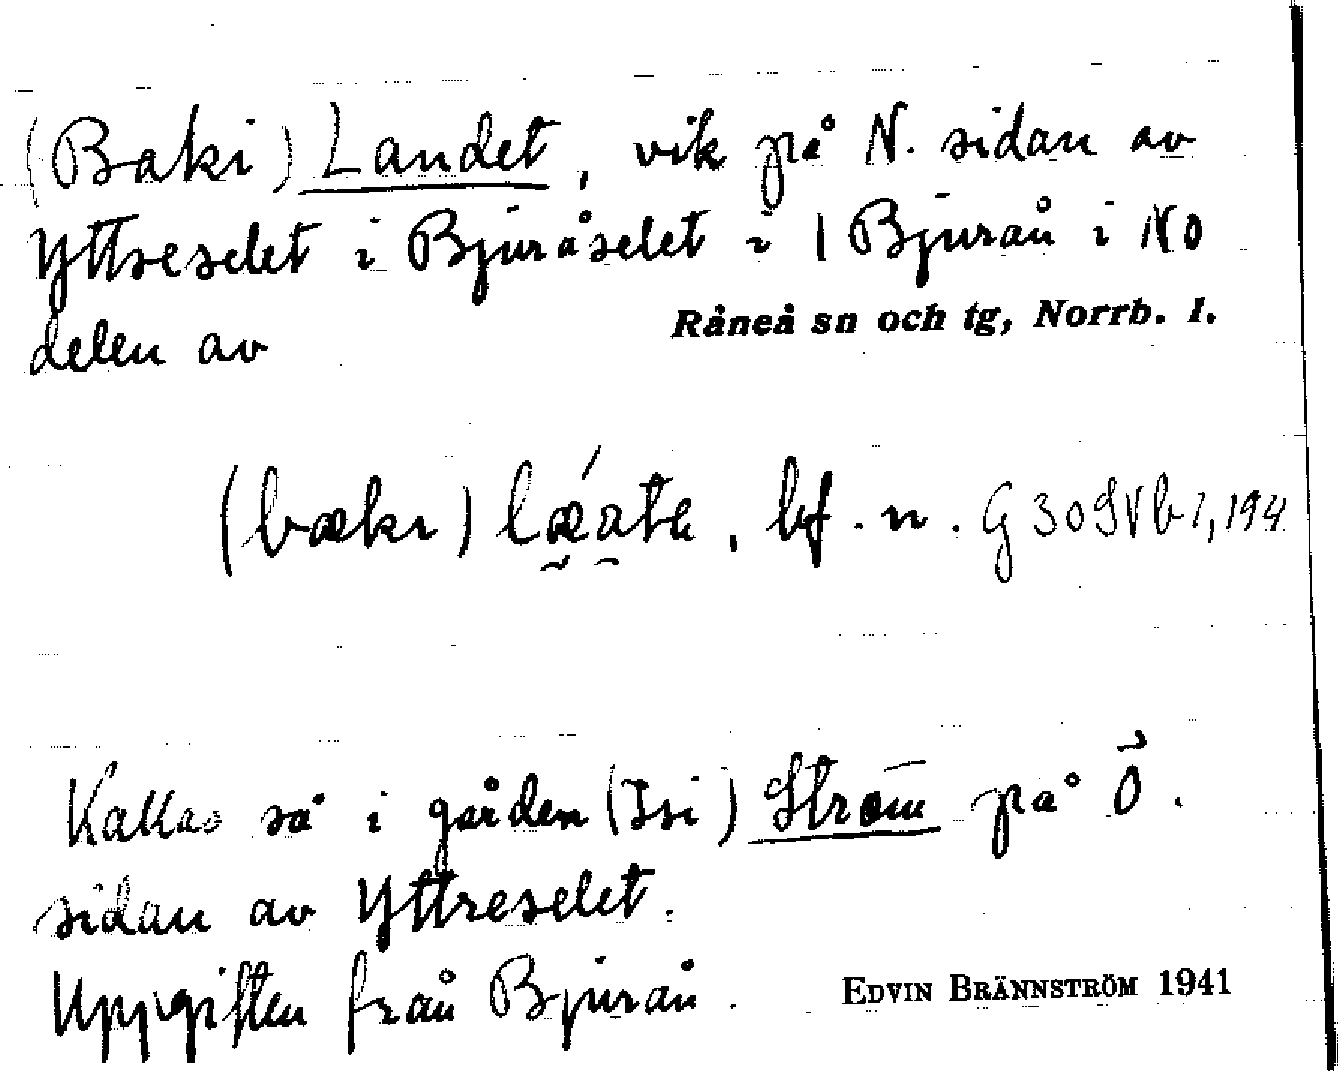 (Baki) Landet, vik på N. sidan av
Yttreselet i Bjuråselet i 1 Bjurån i NO
delen av Råneå sn och tg, Norrb. l.
(bæki) lǽate, bf. n. G 30
Kallas så i gården (Isi) Ström på Ö.
sidan av Yttreselet.
Uppgiften från Bjurån. EDVIN BRÄNNSTRÖM 1941